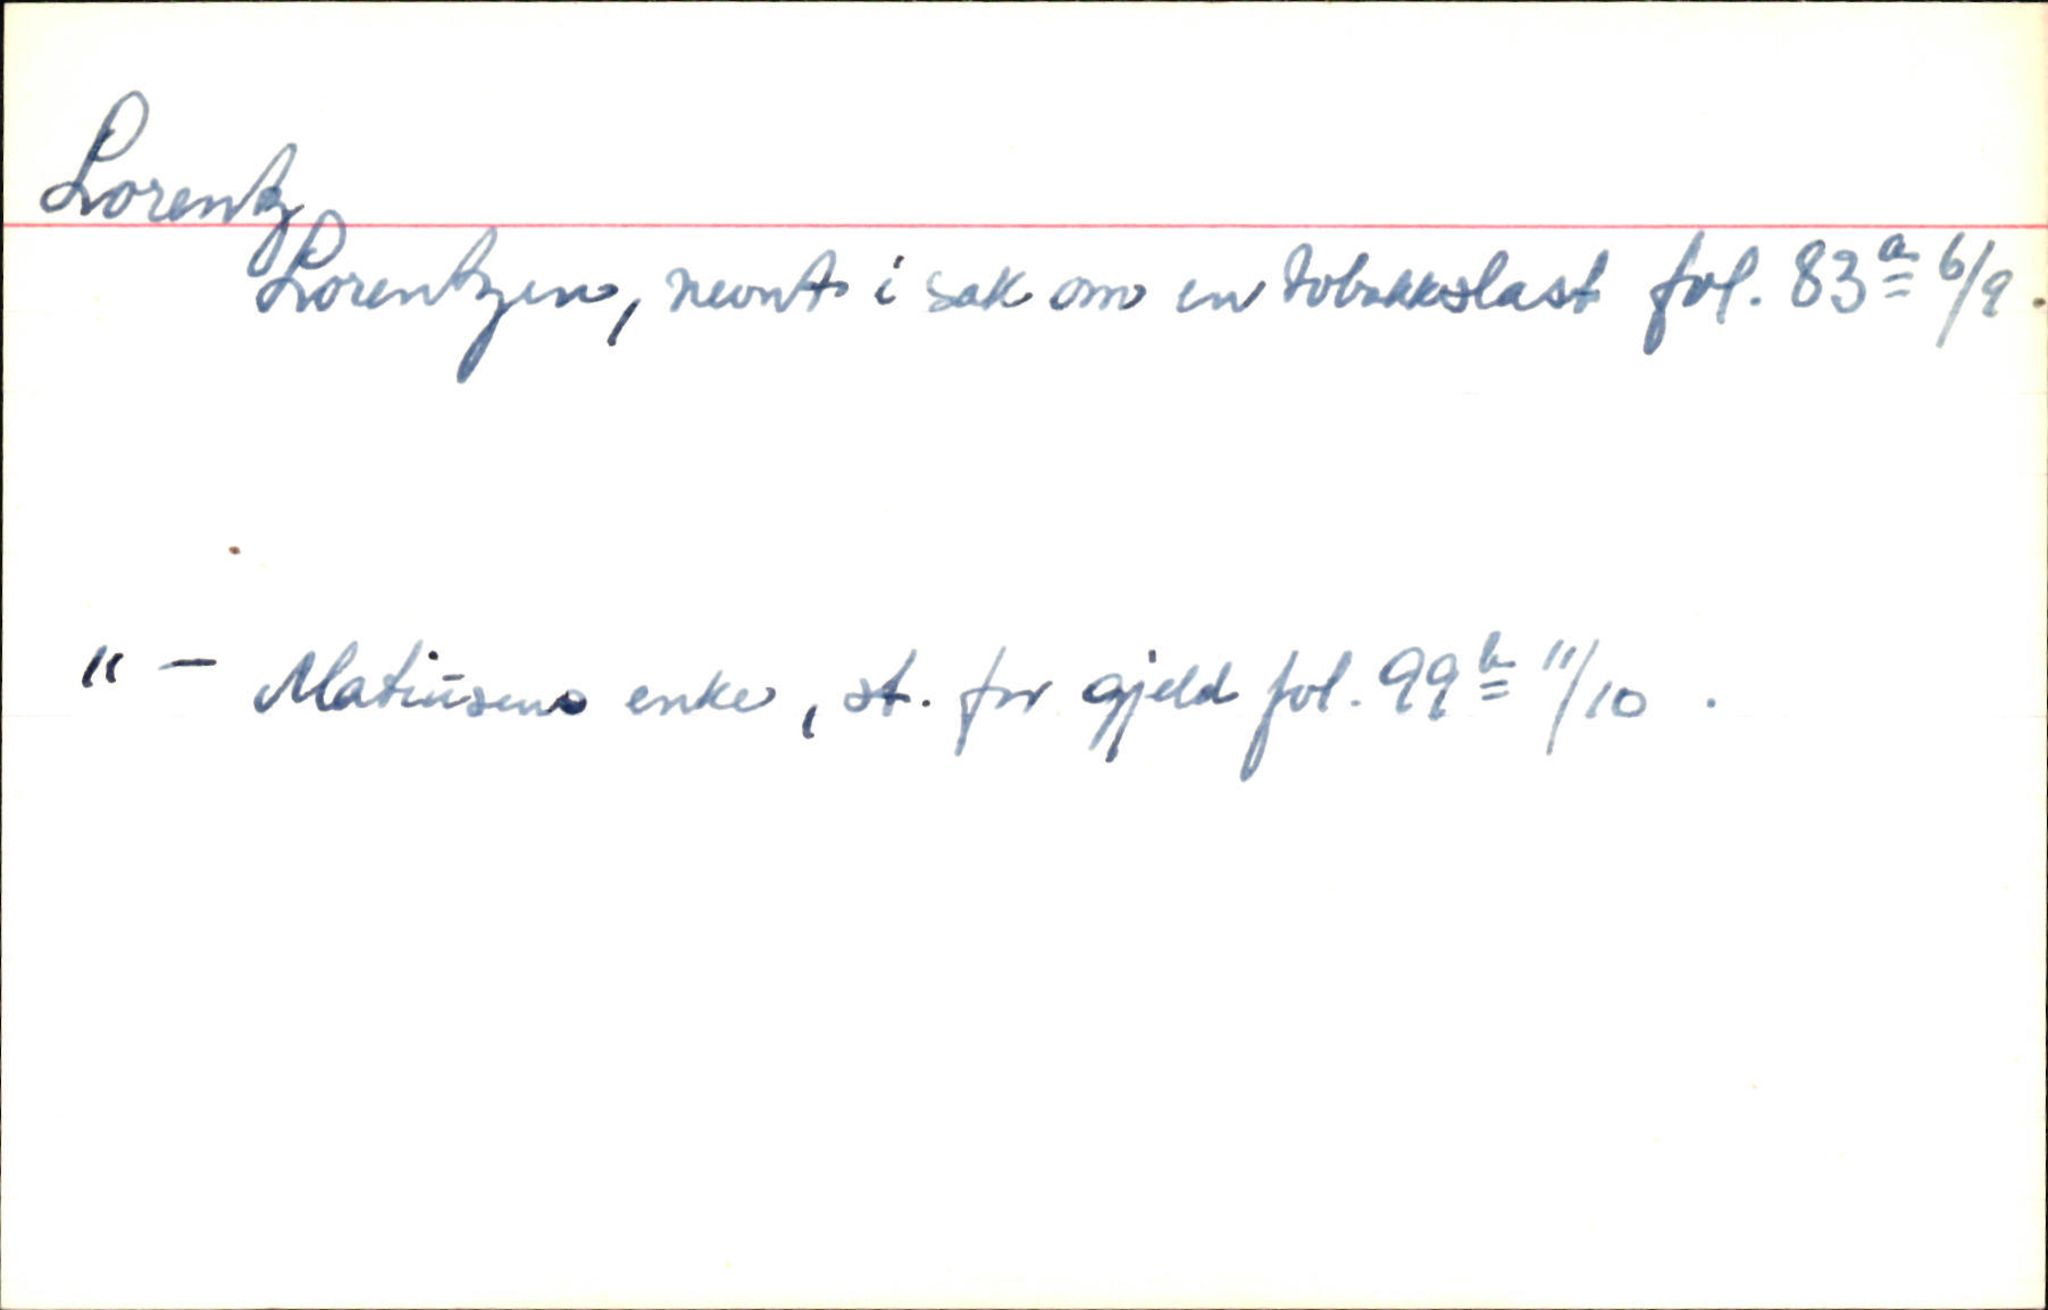 Lorentz
Lorentzen, nevnt i sak om en tobakkslast fol. 83ª 6/9.
" — Matiusens enke, st. for gjeld fol. 99ᵇ 11/10.